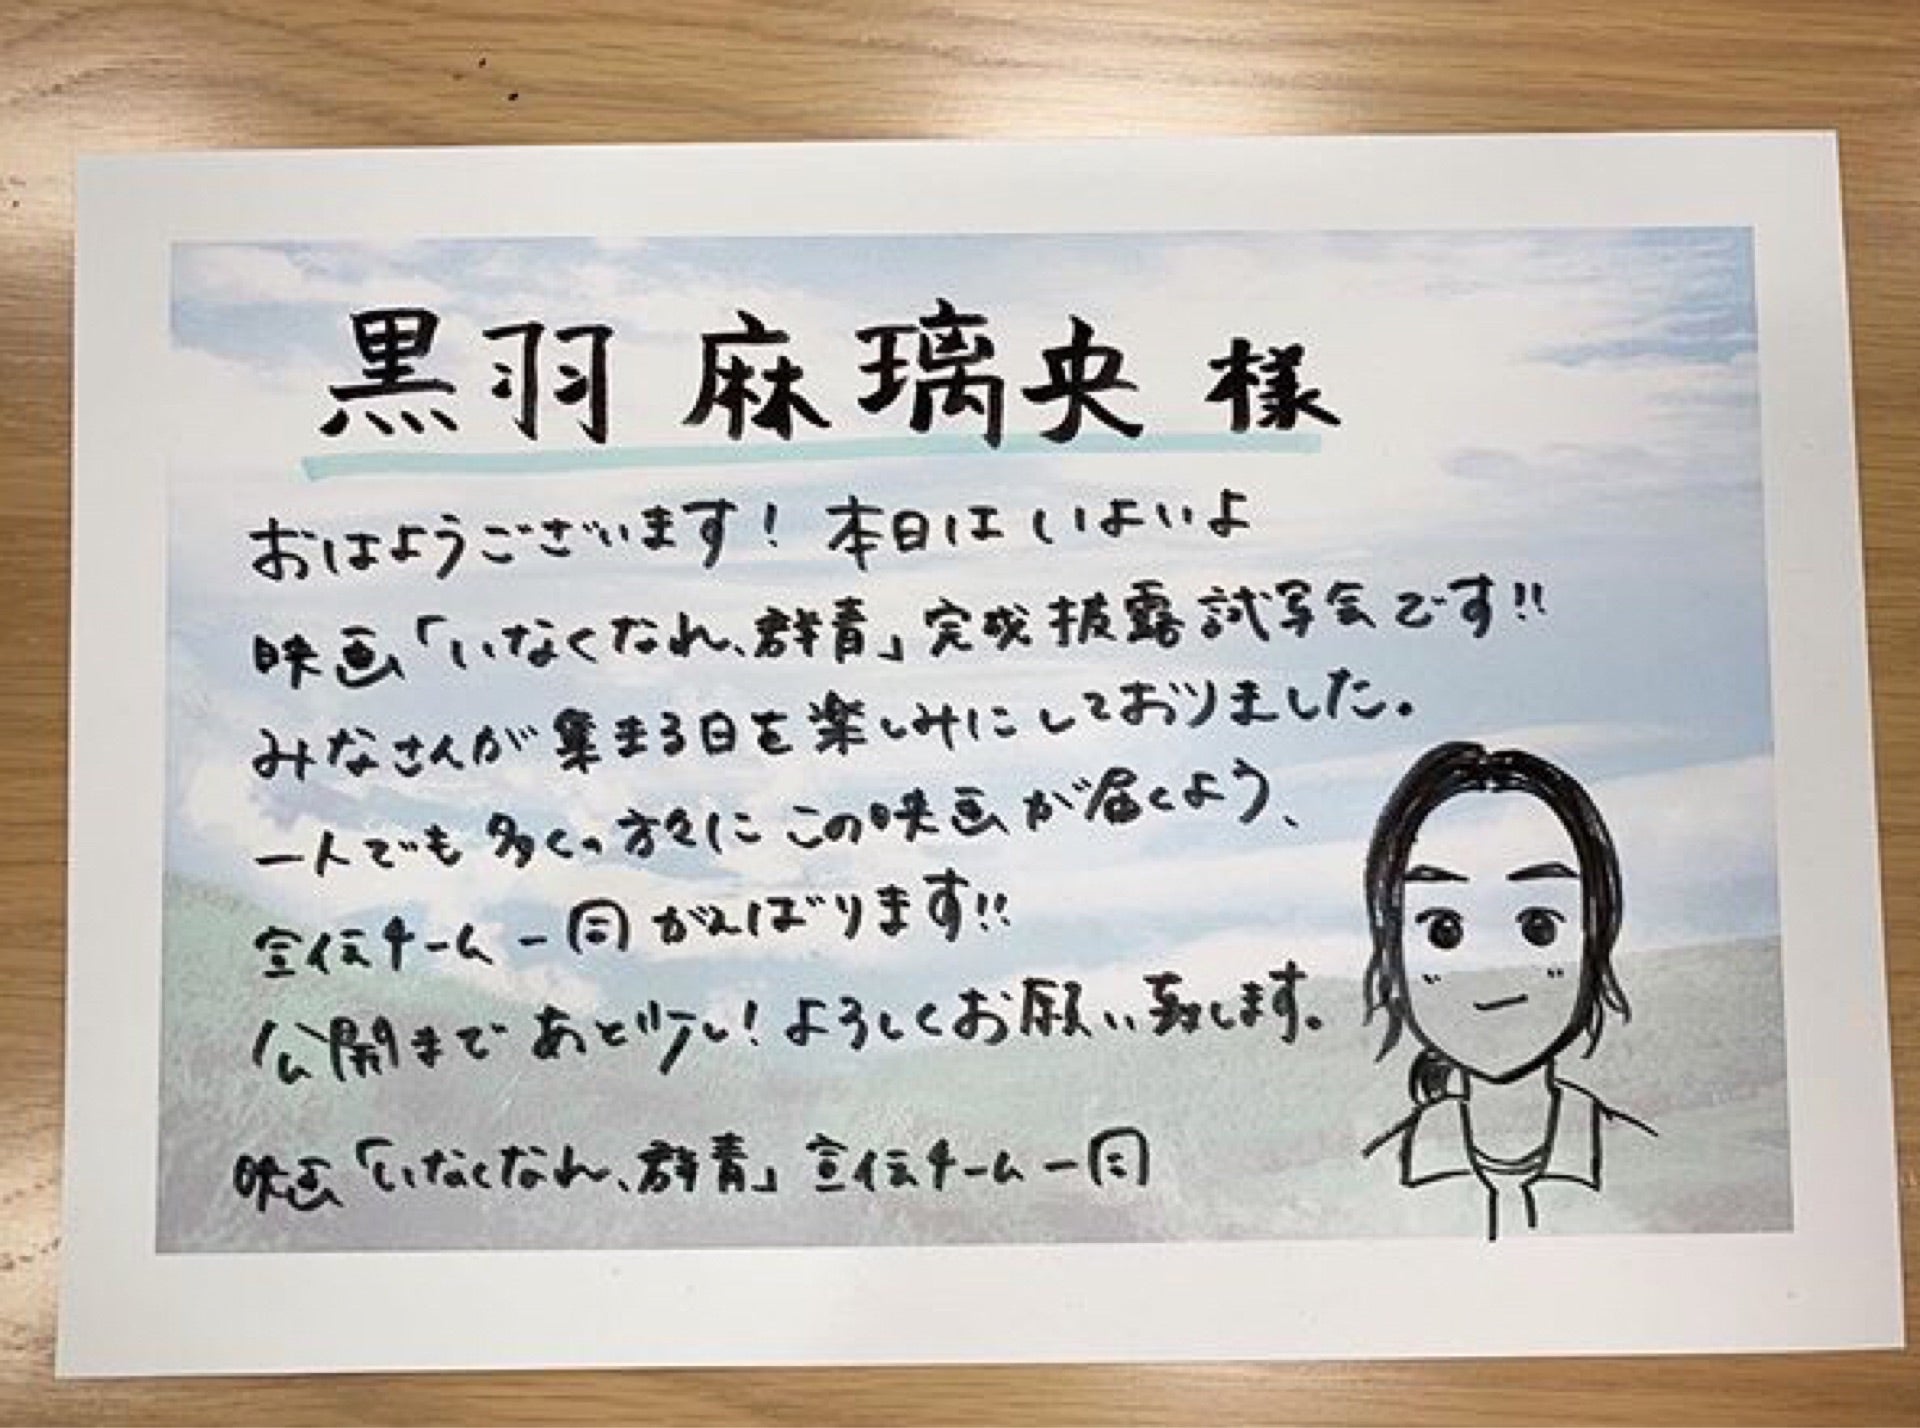 黒羽 麻璃央 様
おはようございます! 本日は いよいよ
映画「いなくなれ、群青」完成披露試写会です!!
みなさんが集まる日を楽しみにしておりました。
一人でも多くの方々に この映画が届くよう、
宣伝チーム一同 がんばります!!
公開まで あと少し! よろしくお願い致します。
映画「いなくなれ、群青」宣伝チーム一同